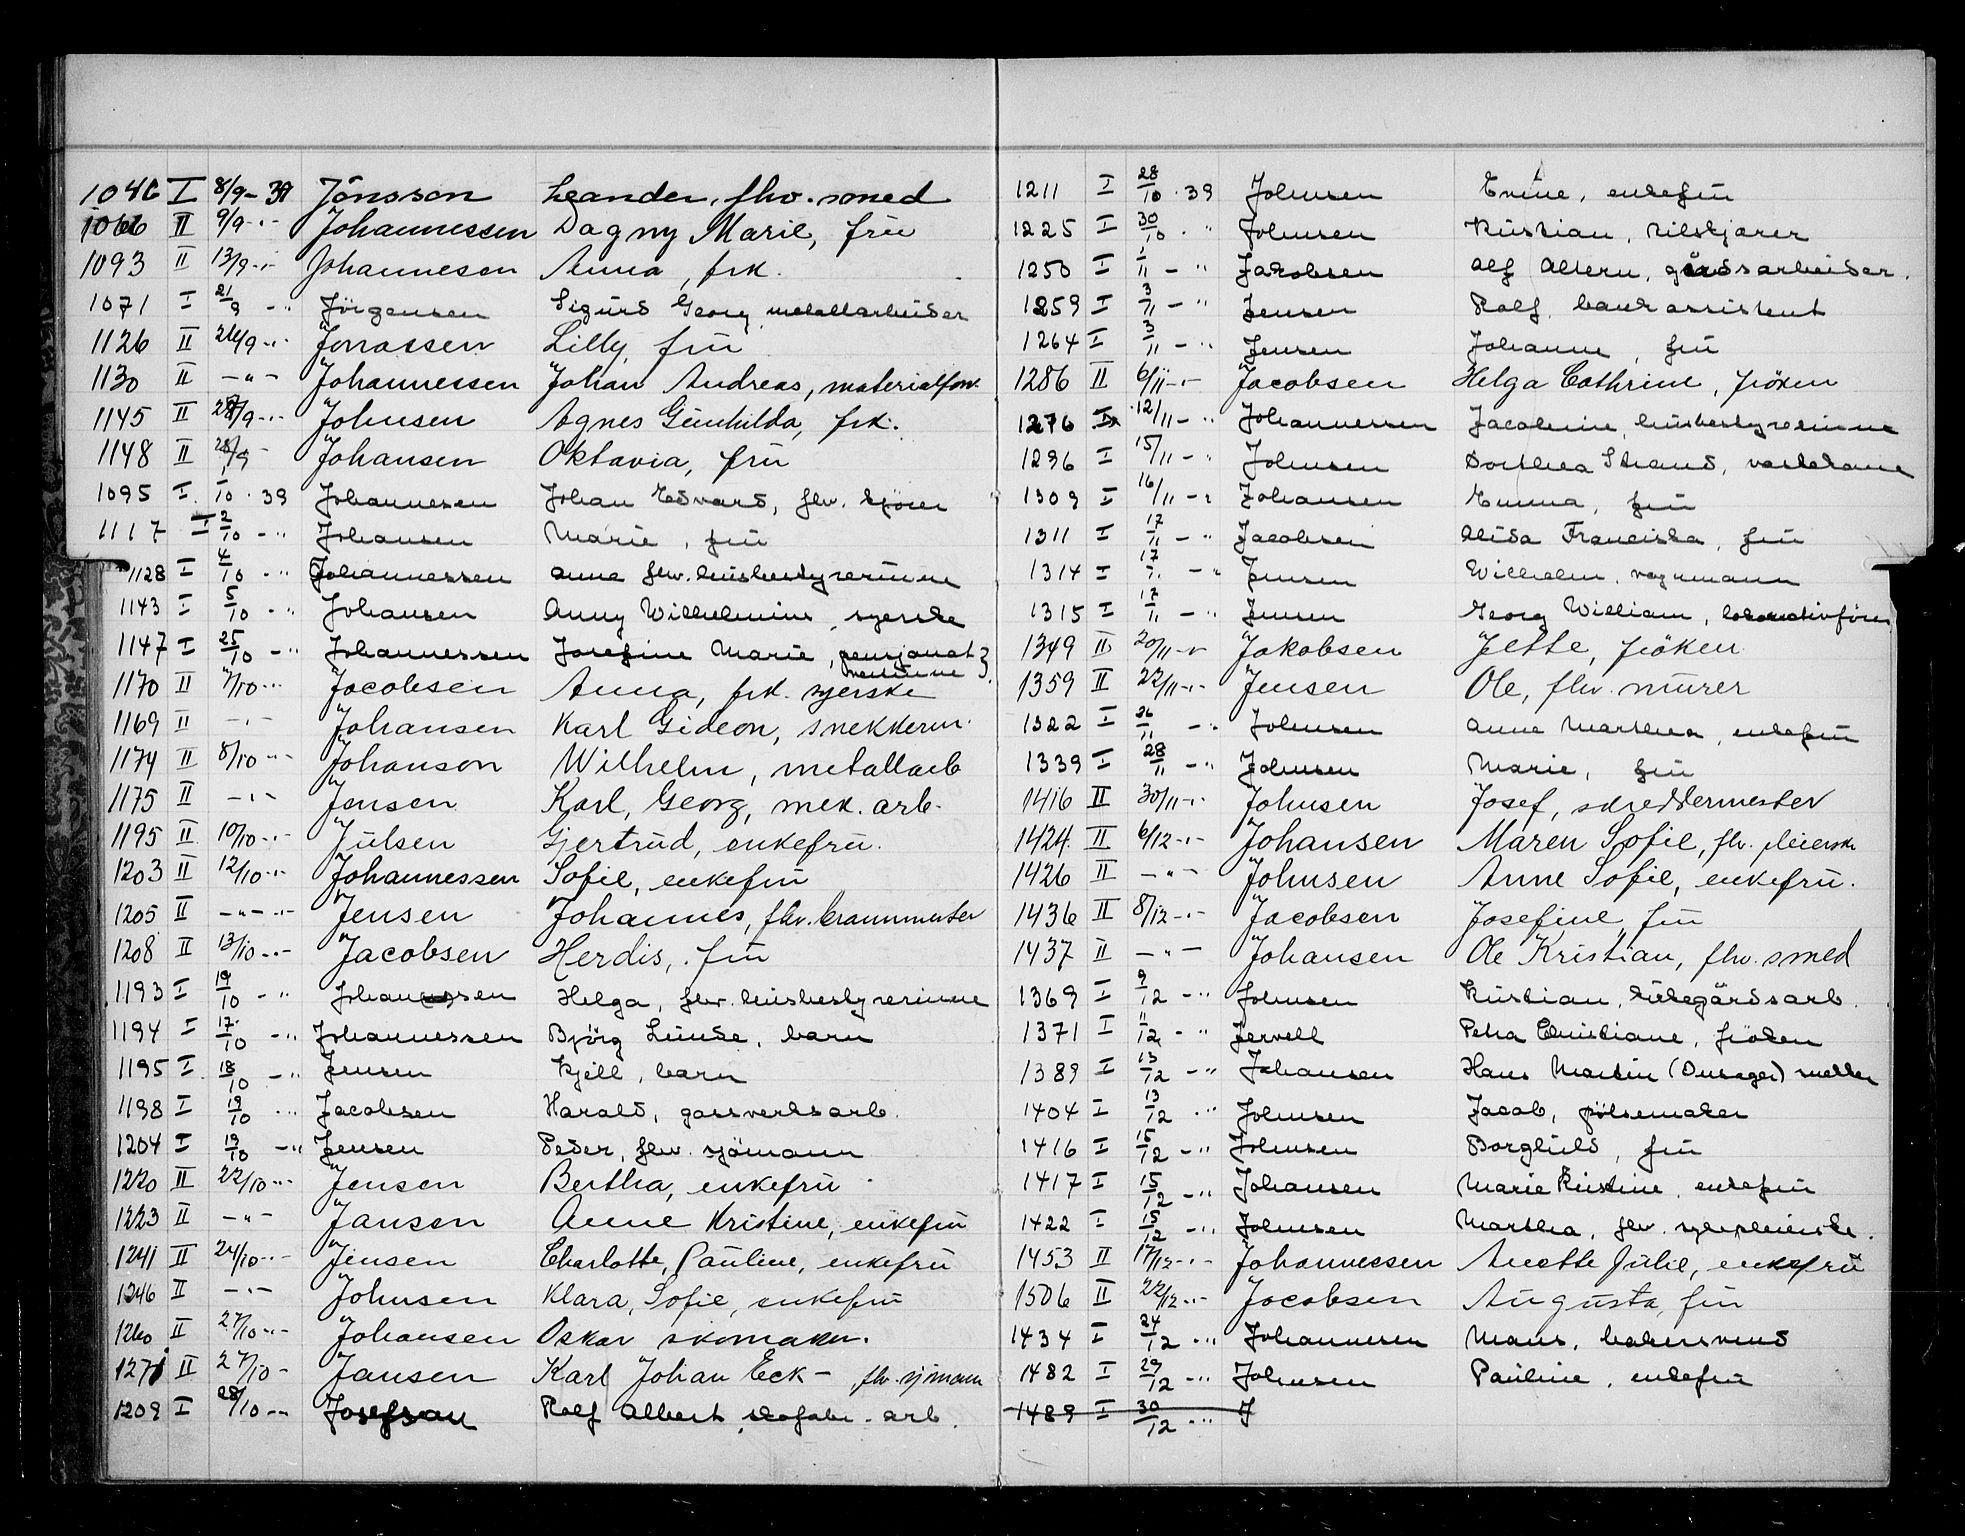 1046 I 8/9-39 Jönsson Leander, fhv. smed
1066 II 9/9-"- Johannessen Dagny Marie, fru
1093 II 13/9-"- Johannesen Anna, frk.
1071 I 21/9 -" Jörgensen Sigurd Georg, metallarbeider
1126 II 26/9-"- Jonassen Lilly, fru
1130 II -"- Johannessen Johan Andreas, materialforv.
1145 II 28/9-"- Johnsen Agnes Gunhilda, frk.
1148 II 28/9 - Johansen Oktavia, fru
1095 I 1/10 . 39 Johannesen Johan Edvard, fhv. kjörer
1117 I 2/10 -" Johansen Marie, fru
1128 I 4/10 -" Johannessen Anna fhv. husbestyrerinne
1143 I 5/10 -" Johansen Anny Wilhelmine, syerske
1147 I 25/10 -" Johannessen Josefine Marie, pensjonat
venninne
1170 II 7/10-"- Jacobsen Anna, frk. syerske
1169 II -"- Johansen Karl Gideon, snekkerm.
1174 II 8/10-"- Johanson Wilhelm, metallarb
1175 II -"- Jensen Karl, Georg, mek. arb.
1195 II 10/10-"- Julsen Gjertrud, enkefru.
1203 II 12/10-"- Johannessen Sofie, enkefru
1205 II -"- -"- Jensen Johannes, fhv. brannmester
1208 II 13/10-"- Jacobsen Herdis, fru
1193 I 19/10 -" Johannessen Helga, fhv. husbestyrerinne
1194 I 17/10 -" Johannessen Björg Lunde, barn
1195 I 18/10 -" Jensen Kjell, barn
1198 I 19/10 -" Jacobsen Harald, gassverksarb.
1204 I 19/10 -" Jensen Peder, fhv. sjömann
1220 II 22/10-"- Jensen Bertha, enkefru
1223 II -"- Jansen Anne Kristine, enkefru
1241 II 24/10-"- Jensen Charlotte, Pauline, enkefru
1246 II -"- Johnsen Klara, Sofie, enkefru
1260 II 27/10-"- Johansen Oskar skomaker.
1271 II 27/10 - Jansen Karl Johan Eck - fhv. sjömann
1209 I 28/10 -" Josefsen Rolf Albert, skofabr. arb.
1211 I 28/10 . 39 Johnsen enkefru
1225 I 30/10 . " Johnsen Kristian, bilkjörer
1250 I 1/11 - " Jakobsen Alf Altern, gårdsarbeider.
1259 I 3/11 - " Jensen Rolf, bankassistent
1264 I 3/11 - " Jensen Johanne, fru
1286 II 6/11-"- Jacobsen Helga Cathrine, fröken
1276 I 12/11 -" Johannessen Jacobine, husbestyrerinne
1296 I 15/11 -" Johnsen Dorthea Strand, vaskekone
1309 I 16/11 -" Johansen Emma, fru
1311 I 17/11 -" Jacobsen Alida Franciska, fru
1314 I 17/11 -" Jensen Wilhelm, vognmann
1315 I 17/11 -" Jensen Georg William, lokomotivförer
1349 II 20/11-"- Jakobsen Jette, fröken
1359 II 22/11-"- Jensen Ole, fhv. murer
1322 I 26/11 -" Johnsen Anne Marthea, enkefru
1339 I 28/11 -" Johnsen Marie, fru
1416 II 30/11-"- Johnsen Josef, skreddermester
1424 II 6/12-"- Johansen Maren Sofie, fhv. pleierske
1426 II -"- Johnsen Anne Sofie, enkefru.
1436 II 8/12-"- Jacobsen Josefine, fru
1437 II -"- Johansen Ole Kristian, fhv. smed
1369 I 9/12 -" Johnsen Kristian, kirkegårdsarb.
1371 I 11/12 -" Jervell Petra Christiane, fröken
1389 I 13/12 -" Johansen Hans Martin
1404 I 13/12 -" Johnsen Jacob, pölsemaker
1416 I 15/12 -" Johnsen Borghild, fru
1417 I 15/12 -" Johansen Marie Kristine, enkefru
1422 I 15/12 -" Johnsen Martha, fhv. sykepleierske.
1453 II 17/12-"- Johannessen Anette Julie, enkefru
1506 II 22/12-"- Jacobsen Augusta, fru
1434 I 24/12 -" Johannesen Mons, bakersvend
1482 I 29/12 -" Johnsen Pauline, enkefru
1489 I 30/12 -" J